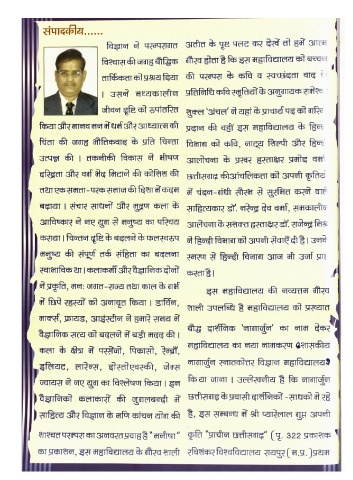 संपादकीय......
विज्ञान ने परम्परागत
विश्वास की जगह बौद्धिक
तार्किकता को प्रश्रय दिया
। उसने मध्यकालीन
जीवन दृष्टि को रूपांतरित
किया और मानव मन में धर्म और आध्यात्म की
चिंता की जगह नीतिकवाद के प्रति चिन्ता
उत्पन्न की । तकनीकी विकास ने भीषण
दरिद्रता और वर्ग भेद मिटाने की कोशिश की
तथा एक समता - परक समाज की दिशा में कदम
बढ़ाया । संचार साधनों और मुद्रण कला के
आविष्कार ने नए युग से मनुष्य का परिचय
कराया । चिन्तन दृष्टि के बदलने के फलस्वरूप
मनुष्य की संपूर्ण तर्क संहिता का बदलना
स्वाभाविक था । कलाकर्मी और वैज्ञानिक दोनों
ने प्रकृति, मनः जगत - सत्य तथा काल के गर्भ
में छिपे रहस्यों को अनावृत किया । डार्विन,
मार्क्स, फ्रायड, आइंस्टीन ने हमारे समय में
वैज्ञानिक सत्य को बदलने में बड़ी मदद की ।
कला के क्षेत्र में पिकासो, रेम्ब्रॉं,
इलियट, लारेन्स, दोस्तोएवस्की, जेम्स
ज्वायस ने नए युग का विश्लेषण किया । इन
वैज्ञानिकों कलाकारों की जुगलबन्दी में
साहित्य और विज्ञान के मणि कांचन योग की
शाश्वत परम्परा का अनवरत प्रवाह है " मनीषा "
का प्रकाशन, इस महाविद्यालय के गौरव शाली
अतीत के पृष्ठ पलट कर देखें तो हमें आत्म
गौरव होता है कि इस महाविद्यालय को बच्चन
की परम्परा के कवि व स्वच्छंदता वाद
प्रतिनिधि कवि स्मृतियों के अनुगायक रामेश्वर
शुक्ल 'अंचल' ने यहां के प्राचार्य पद को गरिमा
प्रदान की वहीं इस महाविद्यालय के हिन्दी
विभाग को कवि, नाट्य शिल्पी और हिन्दी
आलोचना के प्रखर हस्ताक्षर प्रमोद वर्मा
छत्तीसगढ़ की आंचलिकता को अपनी कृतियों
में चंदन - गंधी सौरभ से सुरभित करने वाले
साहित्यकार डॉ. नरेन्द्र देव वर्मा, समकालीन
आलोचना के सशक्त हस्ताक्षर डॉ. राजेन्द्र मिश्र
ने हिन्दी विभाग को अपनी सेवाएँ दी है । उनके
स्मरण से हिन्दी विभाग आज भी उर्जा प्राप्त
करता है ।
इस महाविद्यालय की नव्यतम गौरव
शाली उपलब्धि है महाविद्यालय को प्रख्यात
बौद्ध दार्शनिक 'नागार्जुन' का नाम देकर
महाविद्यालय का नया नामकरण शासकीय
नागार्जुन स्नातकोत्तर विज्ञान महाविद्यालय
किया जाना । उल्लेखनीय है कि नागार्जुन
छत्तीसगढ़ के प्रवासी दार्शनिकों - साधकों में रहे
है, इस सम्बन्ध में श्री प्यारेलाल गुप्त अपनी
कृति "प्राचीन छत्तीसगढ़" ( पृ. 322 प्रकाशक
रविशंकर विश्वविद्यालय रायपुर ( म.प्र. ) प्रथम